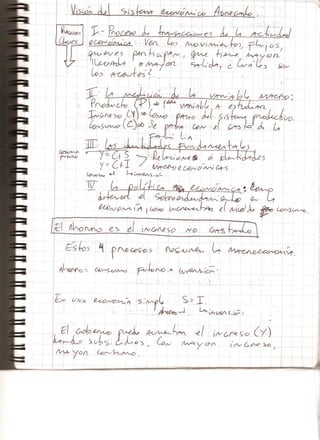 Visión del sistema económico Agregado.
Nociones claves
I- Proceso de transacciones de la Actividad
económica: Ver los movimientos, flujos,
quienes participan, que tiene mayor
llegada o mayor salida, ¿Cuáles son
los Agentes?.
II. La medición de la variable macro:
Producto (P) → variable A estudiar,
Ingreso (Y) → como pago del sistema productivo
consumo (C) → Se paga con el Gasto de la
Familia
III Las identidades Fundamentales
Y = C + S
Y = C + I
Relaciones o identidades
macroeconómicas
IV La política económica: Como
en la
economía, como incrementar el nivel de consumo.
El Ahorro es el ingreso NO Gastado
Estos 4 procesos resumen la macroeconomía.
Ahorro: consumo futuro o inversión
En una economía simple S = I
Ahorro Inversión
El Gobierno puede Aumentar el ingreso (Y)
dando subsidios, Con mayor ingreso,
mayor consumo.